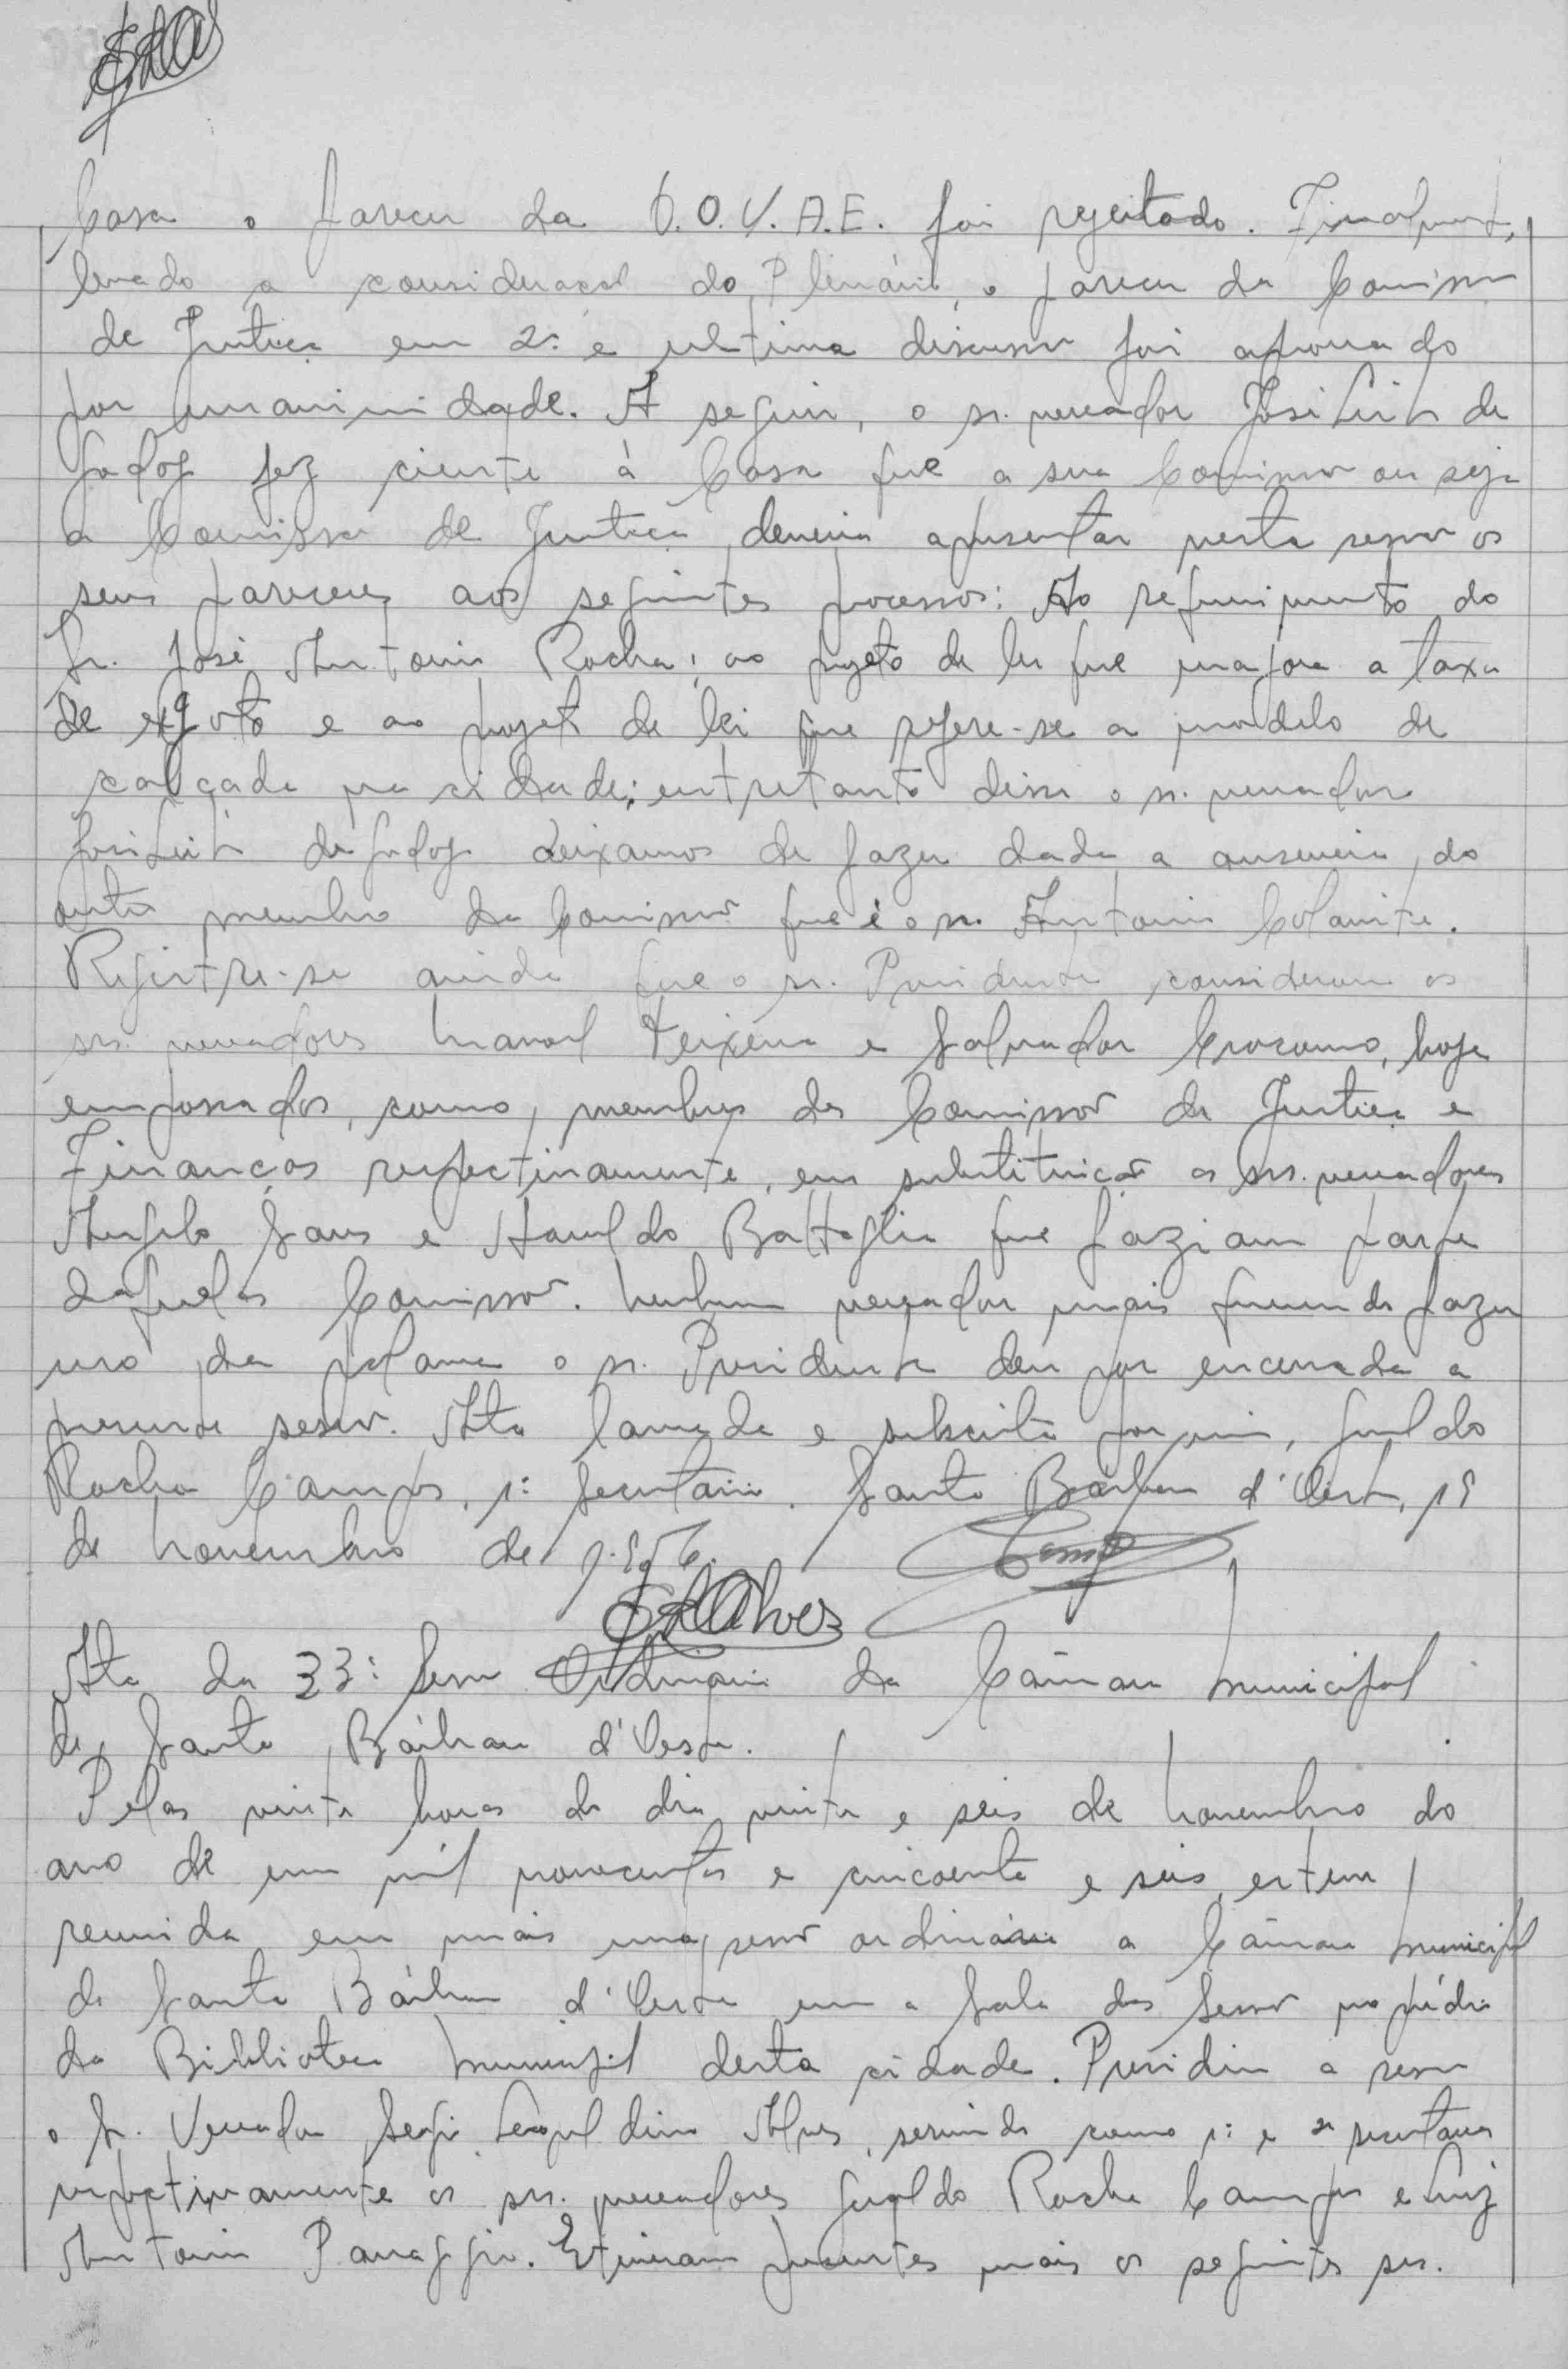 Casa o parecer da C.O.V.A.E. foi rejeitado. Finalmente,
levado a consideração do Plenário, o parecer da Comissão
de Justiça em 2ª e ultima discussão foi aprovado
por unanimidade. A seguir, o sr. vereador José Leite de
Godoy fez ciente à Casa que a sua Comissão ou seja
a Comissão de Justiça, deveria apresentar nesta sessão os
seus pareceres aos seguintes processos: Ao requerimento do
Sr. José Antonio Rocha; ao projeto de lei que majora a taxa
de exgoto e ao projeto de lei que refere-se a modelo de
calçada na cidade; entretanto disse o sr. vereador
José Leite de Godoy deixamos de fazer dada a ausencia do
outro membro da Comissão que é o sr. Antonio
Registre-se ainda que o sr. Presidente considerou os
srs. vereadores Manoel Teixeira e Salvador hoje
empossados, como, membros das Comissão de Justiça e
Finanças respectivamente, em substituição os srs. vereadores
Angelo Sans e Haroldo Battaglia que faziam parte
daquelas Comissão. Nenhum vereador mais querendo fazer
uso da palavra o sr. Presidente deu por encerrada a
presente sessão. Ata lavrada e subscrita por mim, Geraldo
Rocha Campos, 1º Secretario. Santa Bárbara d'Oeste, 19
de Novembro de 1.956.
Campos
Alves
Ata da 33ª Sessão Ordinaria da Câmara Municipal
de Santa Bárbara d'Oeste.
Pelas vinte horas do dia vinte e seis de Novembro do
ano de um mil novecentos e cincoenta e seis, esteve
reunida em mais uma sessão ordinária a Câmara Municipal
de Santa Bárbara d'Oeste em a Sala das Sessão no prédio
da Biblioteca Municipal desta cidade. Presidiu a sessão
o Sr. Vereador Sergio Leopoldino Alves, servindo como 1º e 2º secretarios
respectivamente os srs. vereadores Geraldo Rocha Campos e Luiz
Antonio Panaggio. Estiveram presentes mais os seguintes srs.